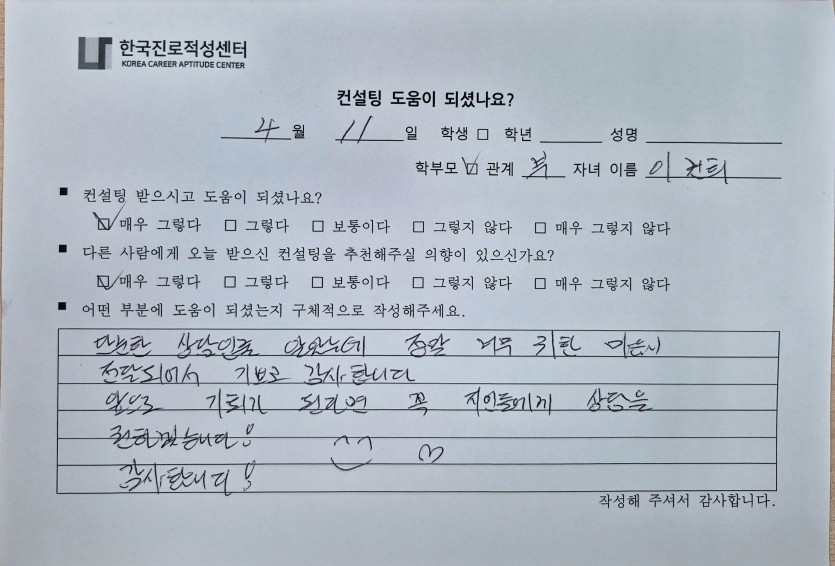 한국진로적성센터
KOREA CAREER APTITUDE CENTER
컨설팅 도움이 되셨나요?
4 월 11 일 학생 □ 학년 성명
학부모 ☑ 관계 부 자녀 이름 이
■ 컨설팅 받으시고 도움이 되셨나요?
☑ 매우 그렇다 □ 그렇다 □ 보통이다 □ 그렇지 않다 □ 매우 그렇지 않다
■ 다른 사람에게 오늘 받으신 컨설팅을 추천해주실 의향이 있으신가요?
☑ 매우 그렇다 □ 그렇다 □ 보통이다 □ 그렇지 않다 □ 매우 그렇지 않다
■ 어떤 부분에 도움이 되셨는지 구체적으로 작성해주세요.
단순한 상담인줄 알았는데 정말 너무 귀한 마음이
전달되어서 기쁘고 감사합니다
앞으로 기회가 된다면 꼭 지인들에게 상담을
권하겠습니다!
감사합니다!
작성해 주셔서 감사합니다.